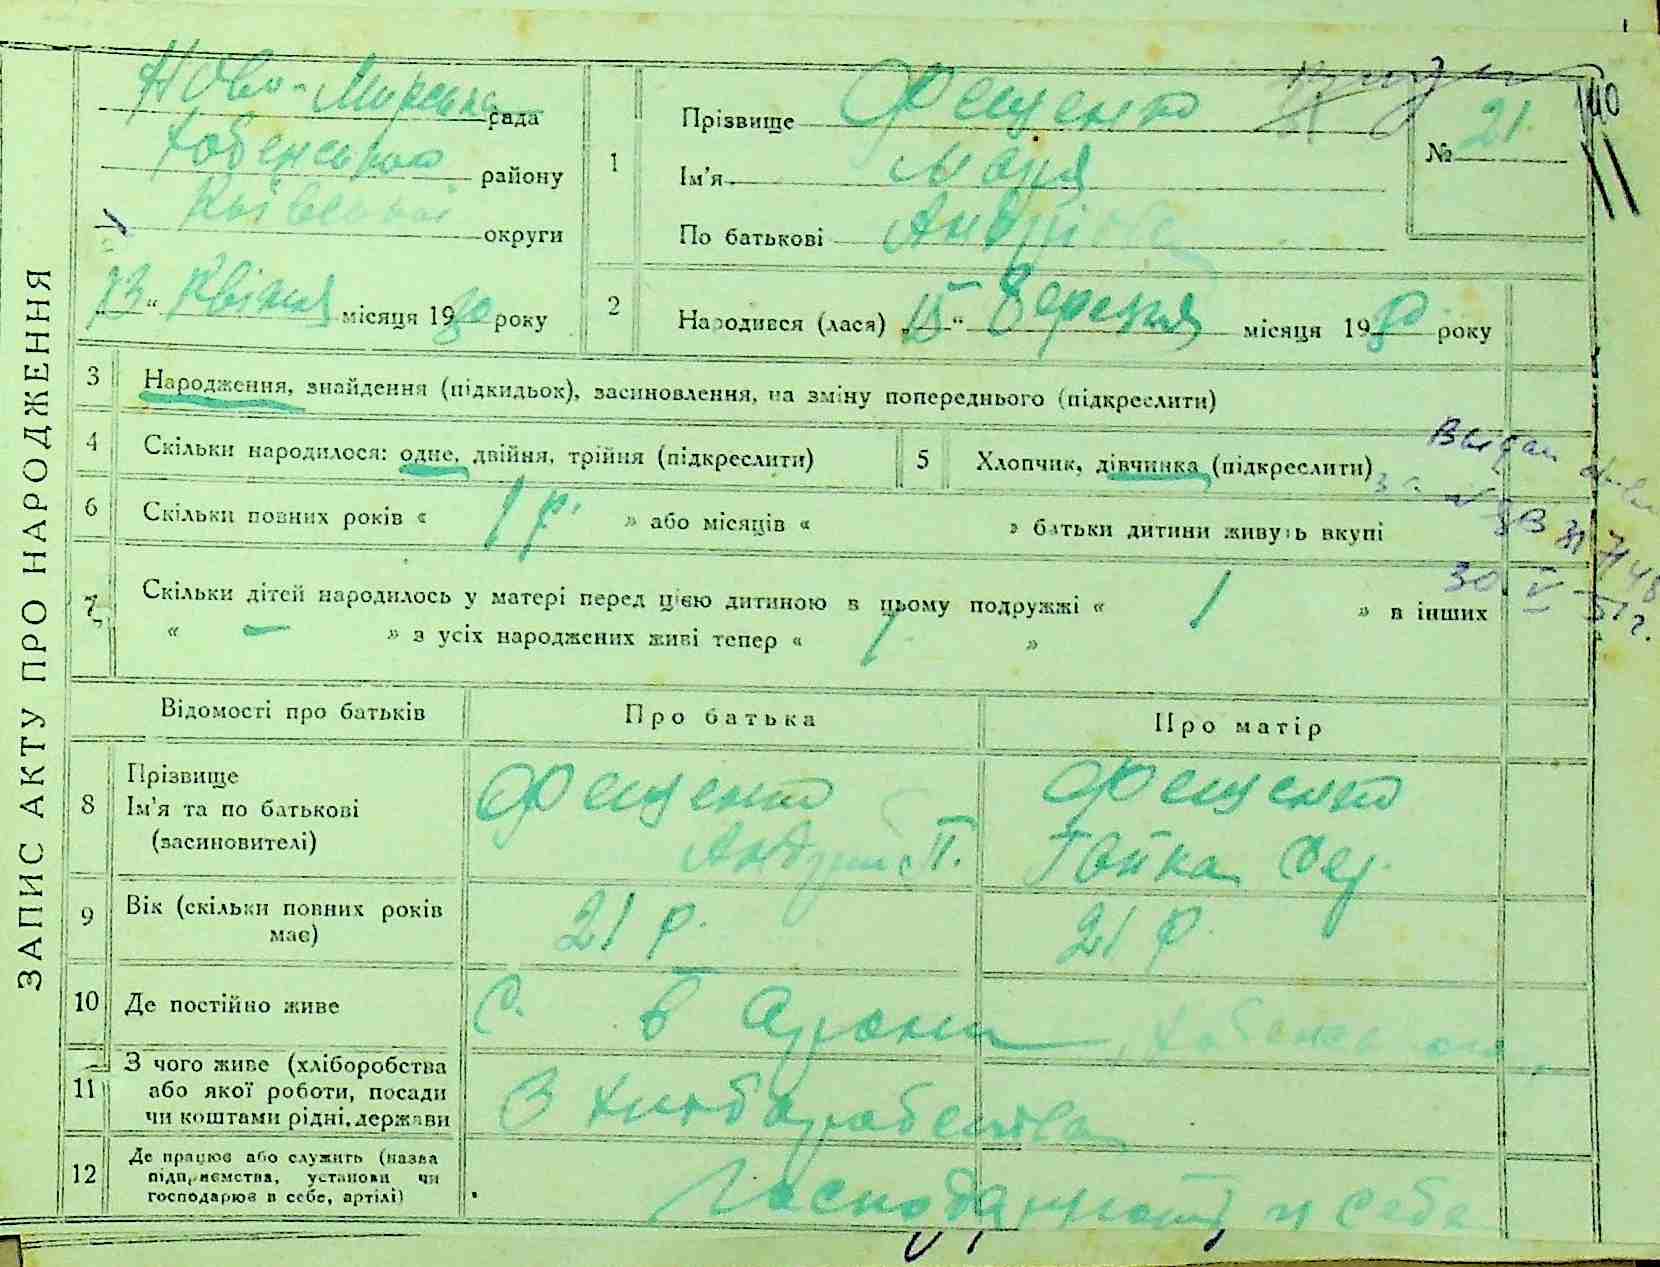 ЗАПИС АКТУ ПРО НАРОДЖЕННЯ
Ново-Мирська рада
Хабенського району
Київської округи
"13" Квітня місяця 1930 року
1
Прізвище Фещенко
Ім'я Маня
По батькові Андріївна
№ 21
140
2
Народився (лася) „15“ Березня місяця 1930 року
3
Народження, знайдення (підкидьок), засиновлення, на зміну попереднього (підкреслити)
4
Скільки народилося: одне, двійня, трійня (підкреслити)
5
Хлопчик, дівчинка (підкреслити)
6
Скільки повних років « 1 р. » або місяців « » батьки дитини живуть вкупі
7
Скільки дітей народилось у матері перед цією дитиною в цьому подружжі « 1 » в інших
« — » з усіх народжених живі тепер « 1 »
30 V 51 г.
Відомості про батьків
Про батька
Про матір
8
Прізвище
Ім'я та по батькові
(засиновителі)
Фещенко
Андрій П.
Фещенко
9
Вік (скільки повних років
має)
21 р.
21 р.
10
Де постійно живе
С.
11
З чого живе (хліборобства
або якої роботи, посади
чи коштами рідні, держави
З хліборобства
12
Де працює або служить (назва
підприємства, установи чи
господарює в себе, артілі)
Господарюють у себе